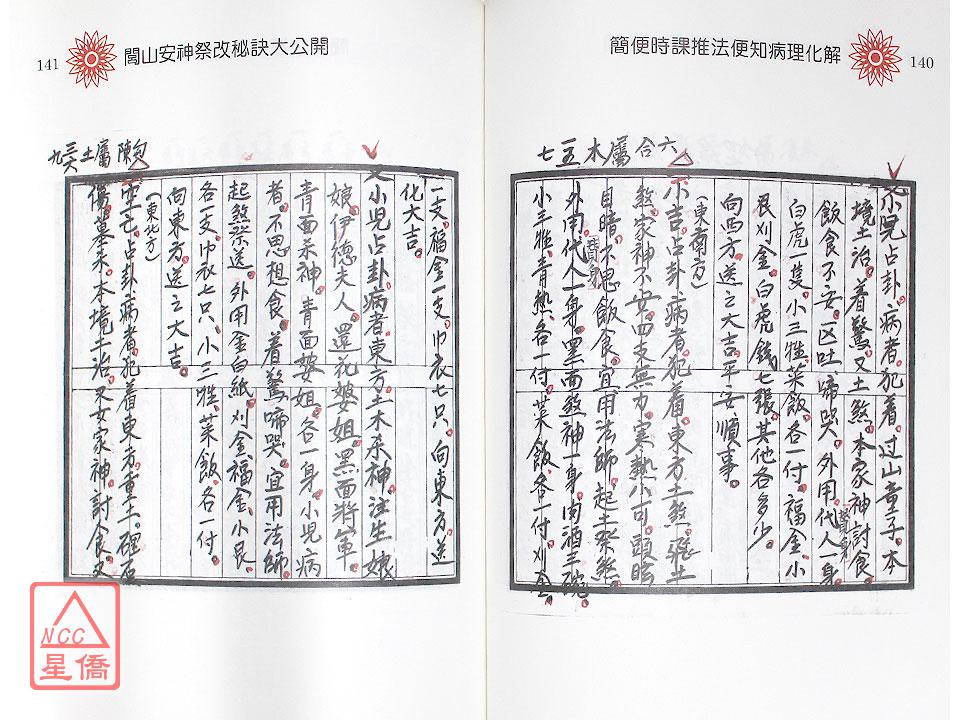 簡便時課推法便知病理化解 140
又小兒占卦。病者。犯着。过山童子。本
境土治。着驚。又土煞。本家神討食。
飯食不安。区吐。啼哭。外用。代人一身
替身
白虎一隻。小三牲。菜飯。各一付。福金。小
艮。刈金。白虎錢。七張。其他各多少。
向西方。送之大吉。平安。順事。
(東南方)
六合屬木 五七
小吉。占卦。病者。犯着。東方土煞。飛土
煞。家神不安。四支無力。寒熱不可。頭暗
目暗。不思飯食。宜用法師。起土祭煞。
外用。代人一身。黑面煞神一身。肉酒三碗。
替身
小三牲。青熱。各一付。菜飯。各一付。刈金
141 閭山安神祭改秘訣大公開
一支。福金一支。巾衣七只。向東方。送
化大吉。
又小兒占卦。病者。東方。土木杀神。注生娘
娘。伊德夫人。還花婆姐。黑面將軍。
青面杀神。青面婆姐。各一身。小兒病
者。不思想食。着驚。啼哭。宜用法師。
起煞祭送。外用金白紙。刈金。福金。小艮
各一支。巾衣七只。小三牲。菜飯。各一付。
向東方。送之大吉。
(東北方)
勾陳屬土三六九
空亡。占卦。病者。犯着東方。重土。碑石
傷墓。未。本境土治。又女家神。討食。又
NCC
星僑